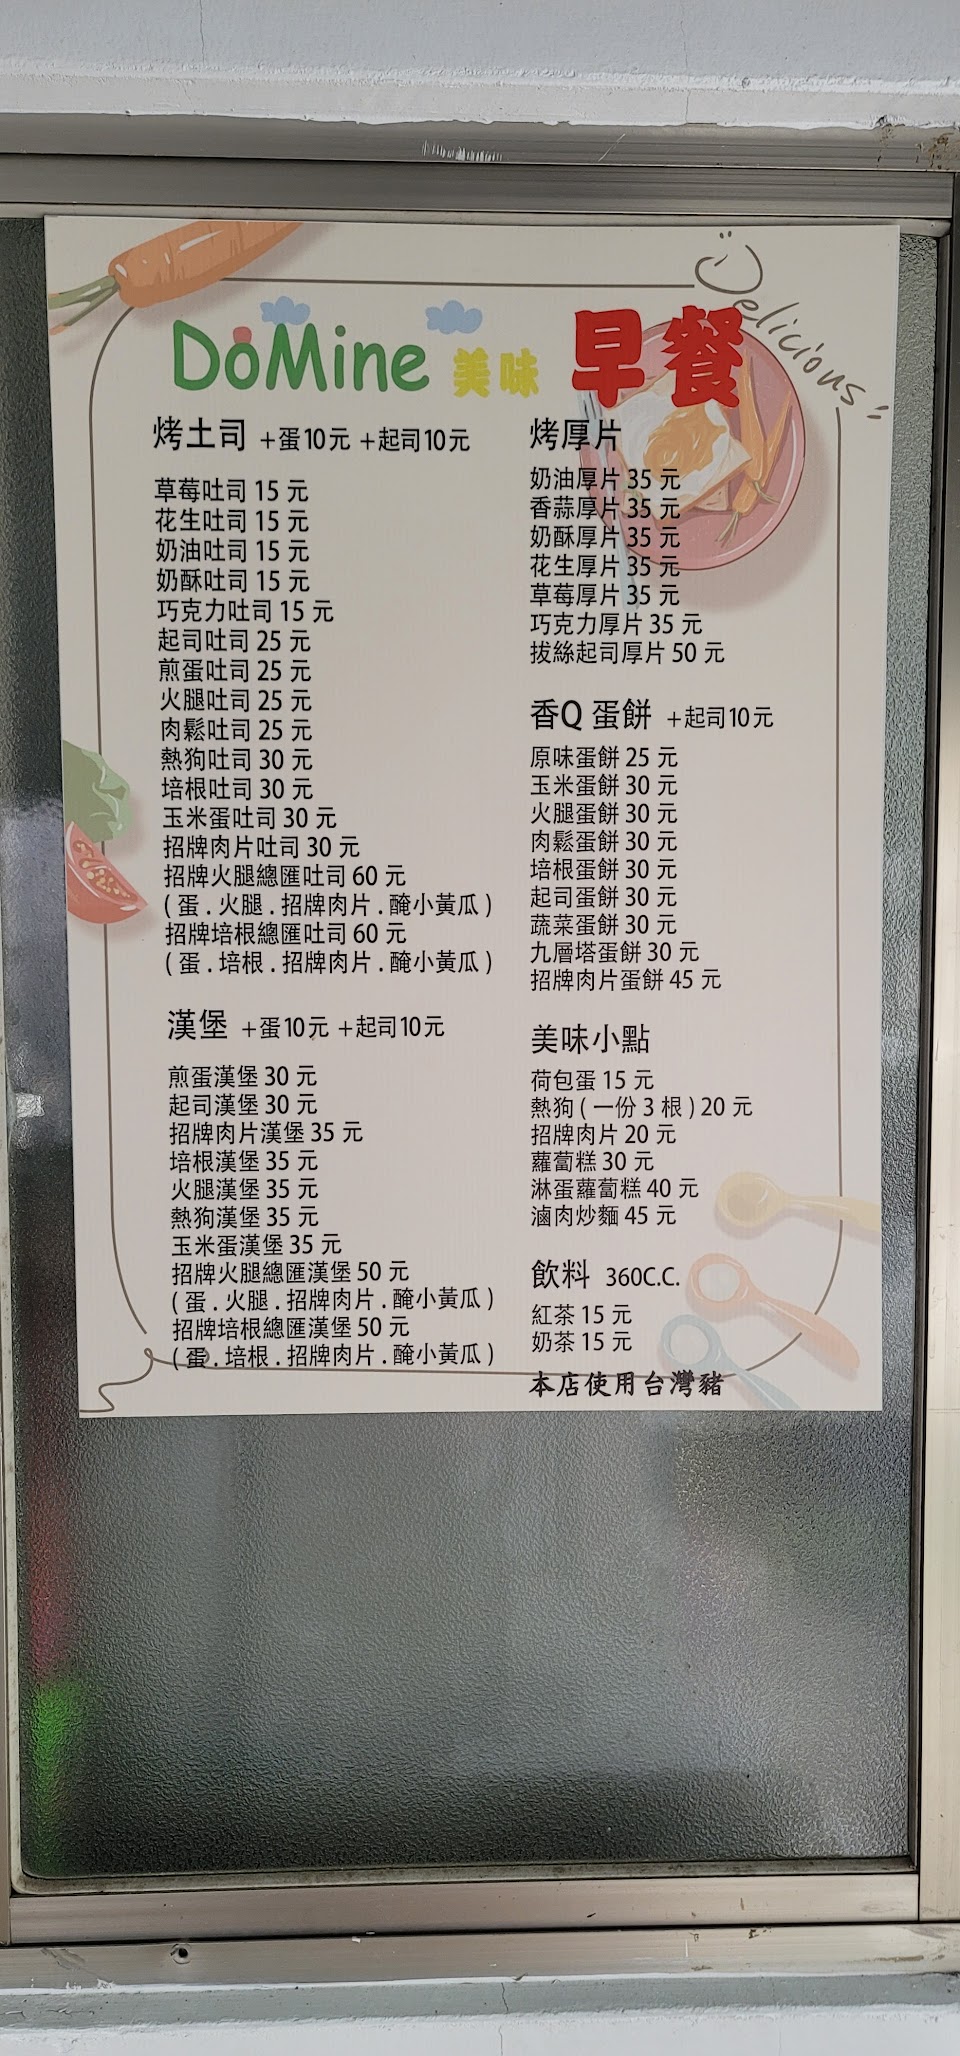 Delicious
DoMine 美味 早餐
烤土司 +蛋10元 +起司10元
草莓吐司 15 元
花生吐司 15 元
奶油吐司 15 元
奶酥吐司 15 元
巧克力吐司 15 元
起司吐司 25 元
煎蛋吐司 25 元
火腿吐司 25 元
肉鬆吐司 25 元
熱狗吐司 30 元
培根吐司 30 元
玉米蛋吐司 30 元
招牌肉片吐司 30 元
招牌火腿總匯吐司 60 元
( 蛋 . 火腿 . 招牌肉片 . 醃小黃瓜 )
招牌培根總匯吐司 60 元
( 蛋 . 培根 . 招牌肉片 . 醃小黃瓜 )
漢堡 +蛋10元 +起司10元
煎蛋漢堡 30 元
起司漢堡 30 元
招牌肉片漢堡 35 元
培根漢堡 35 元
火腿漢堡 35 元
熱狗漢堡 35 元
玉米蛋漢堡 35 元
招牌火腿總匯漢堡 50 元
( 蛋 . 火腿 . 招牌肉片 . 醃小黃瓜 )
招牌培根總匯漢堡 50 元
( 蛋 . 培根 . 招牌肉片 . 醃小黃瓜 )
烤厚片
奶油厚片 35 元
香蒜厚片 35 元
奶酥厚片 35 元
花生厚片 35 元
草莓厚片 35 元
巧克力厚片 35 元
拔絲起司厚片 50 元
香Q 蛋餅 +起司10元
原味蛋餅 25 元
玉米蛋餅 30 元
火腿蛋餅 30 元
肉鬆蛋餅 30 元
培根蛋餅 30 元
起司蛋餅 30 元
蔬菜蛋餅 30 元
九層塔蛋餅 30 元
招牌肉片蛋餅 45 元
美味小點
荷包蛋 15 元
熱狗 ( 一份 3 根 ) 20 元
招牌肉片 20 元
蘿蔔糕 30 元
淋蛋蘿蔔糕 40 元
滷肉炒麵 45 元
飲料 360C.C.
紅茶 15 元
奶茶 15 元
本店使用台灣豬